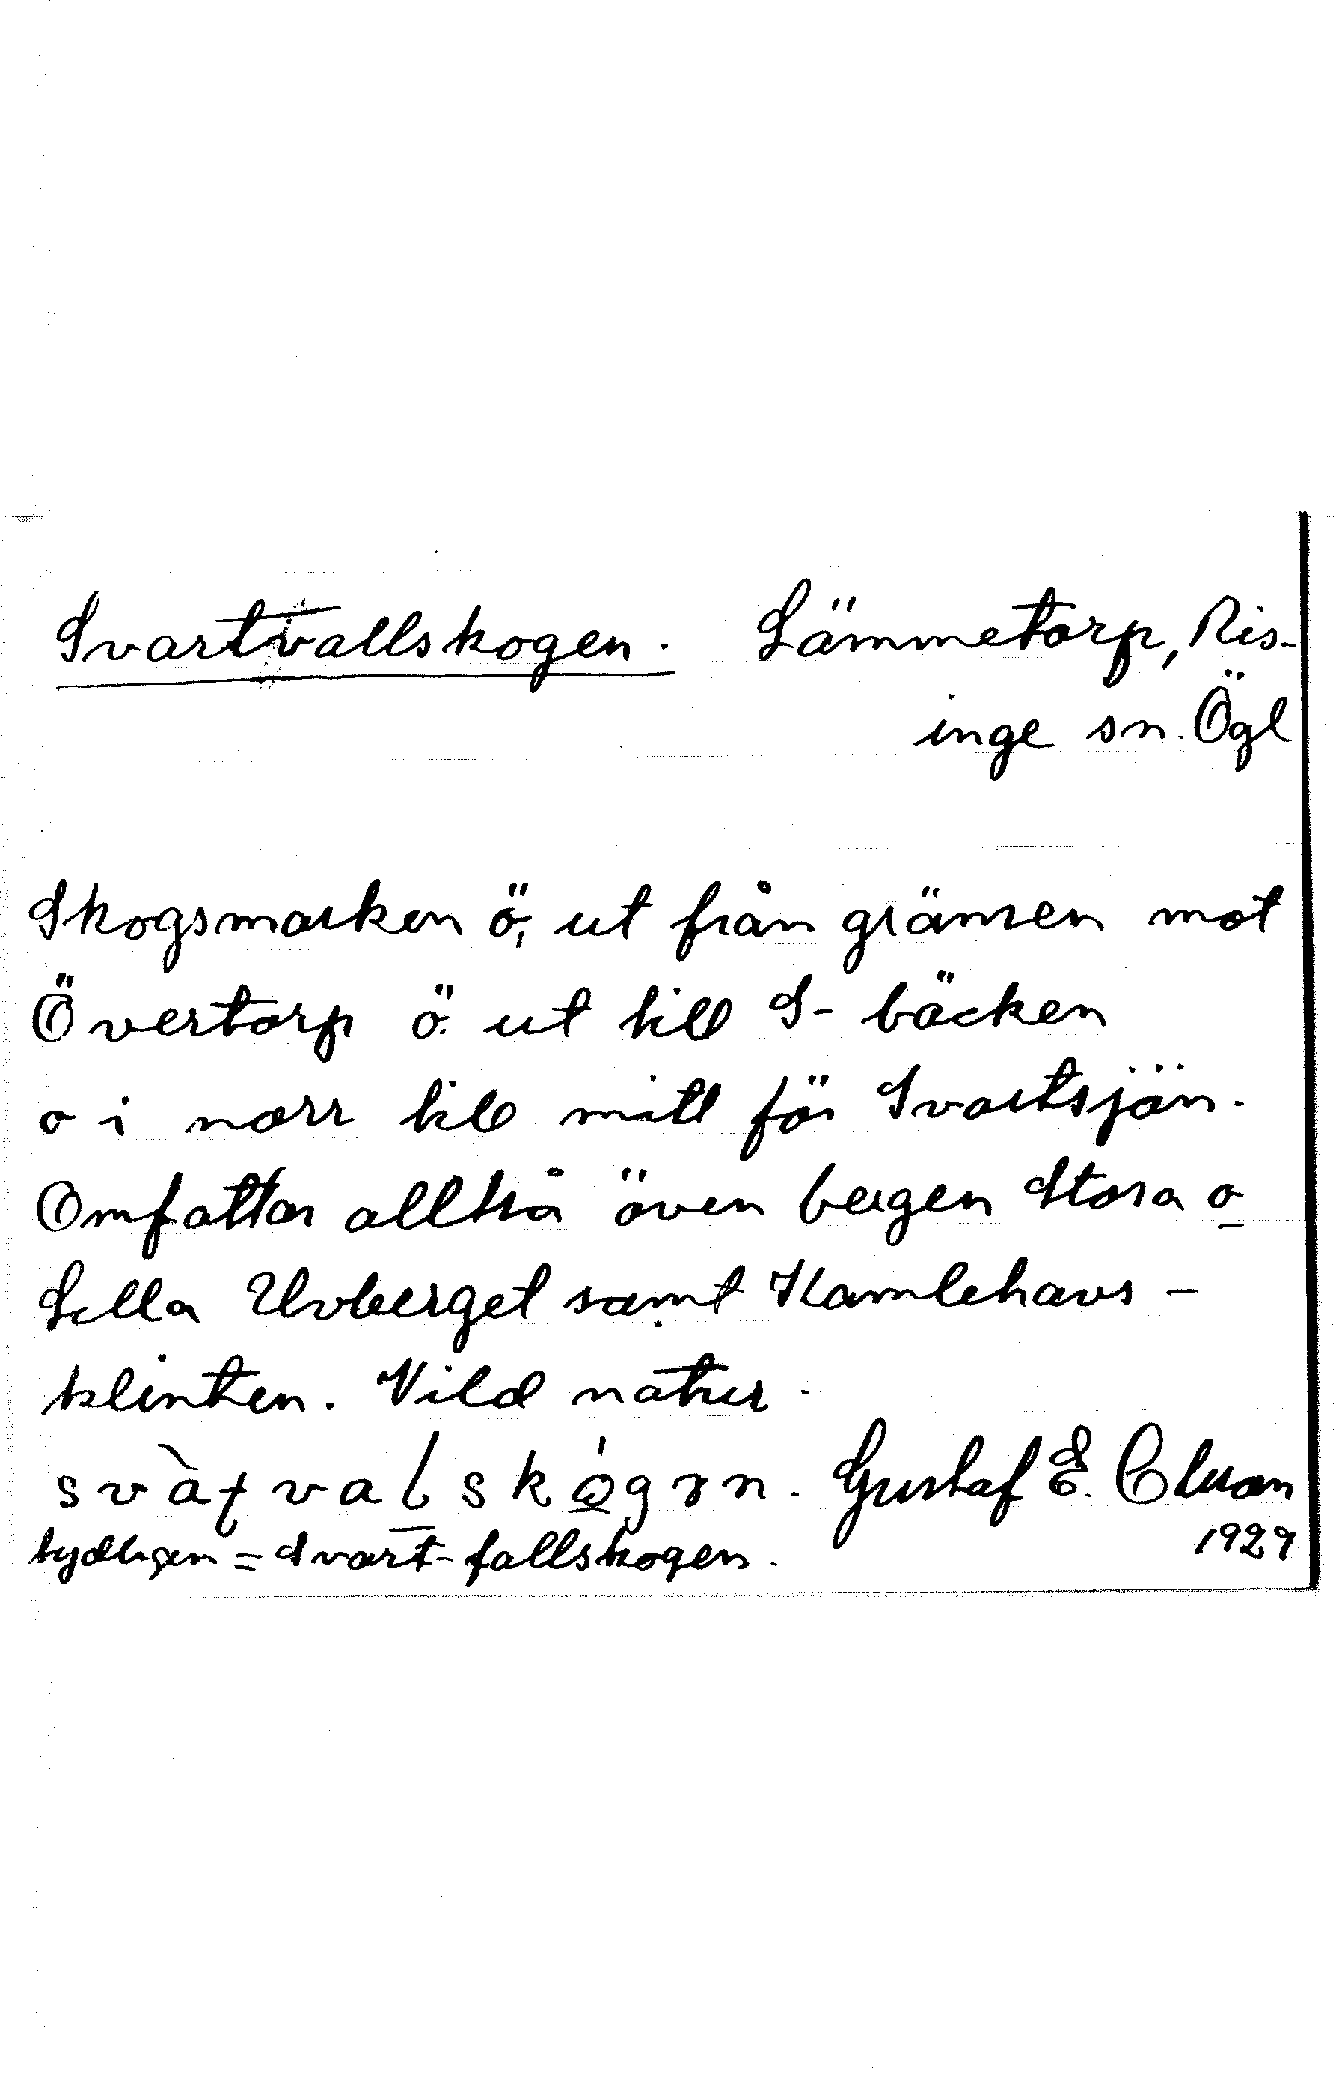 Svartvallskogen. Lämmetorp, Ris-
inge sn. Ögl
Skogsmarken ö, ut från gränsen mot
Övertorp ö. ut till S-bäcken
o i norr till mitt för Svartsjön.
Omfattar alltså även bergen Stora o
Lilla Uvberget samt Kamlehavs-
klinten. Vild natur.
Gustaf E. Cluan
tydligen = Svart-fallskogen.
1929